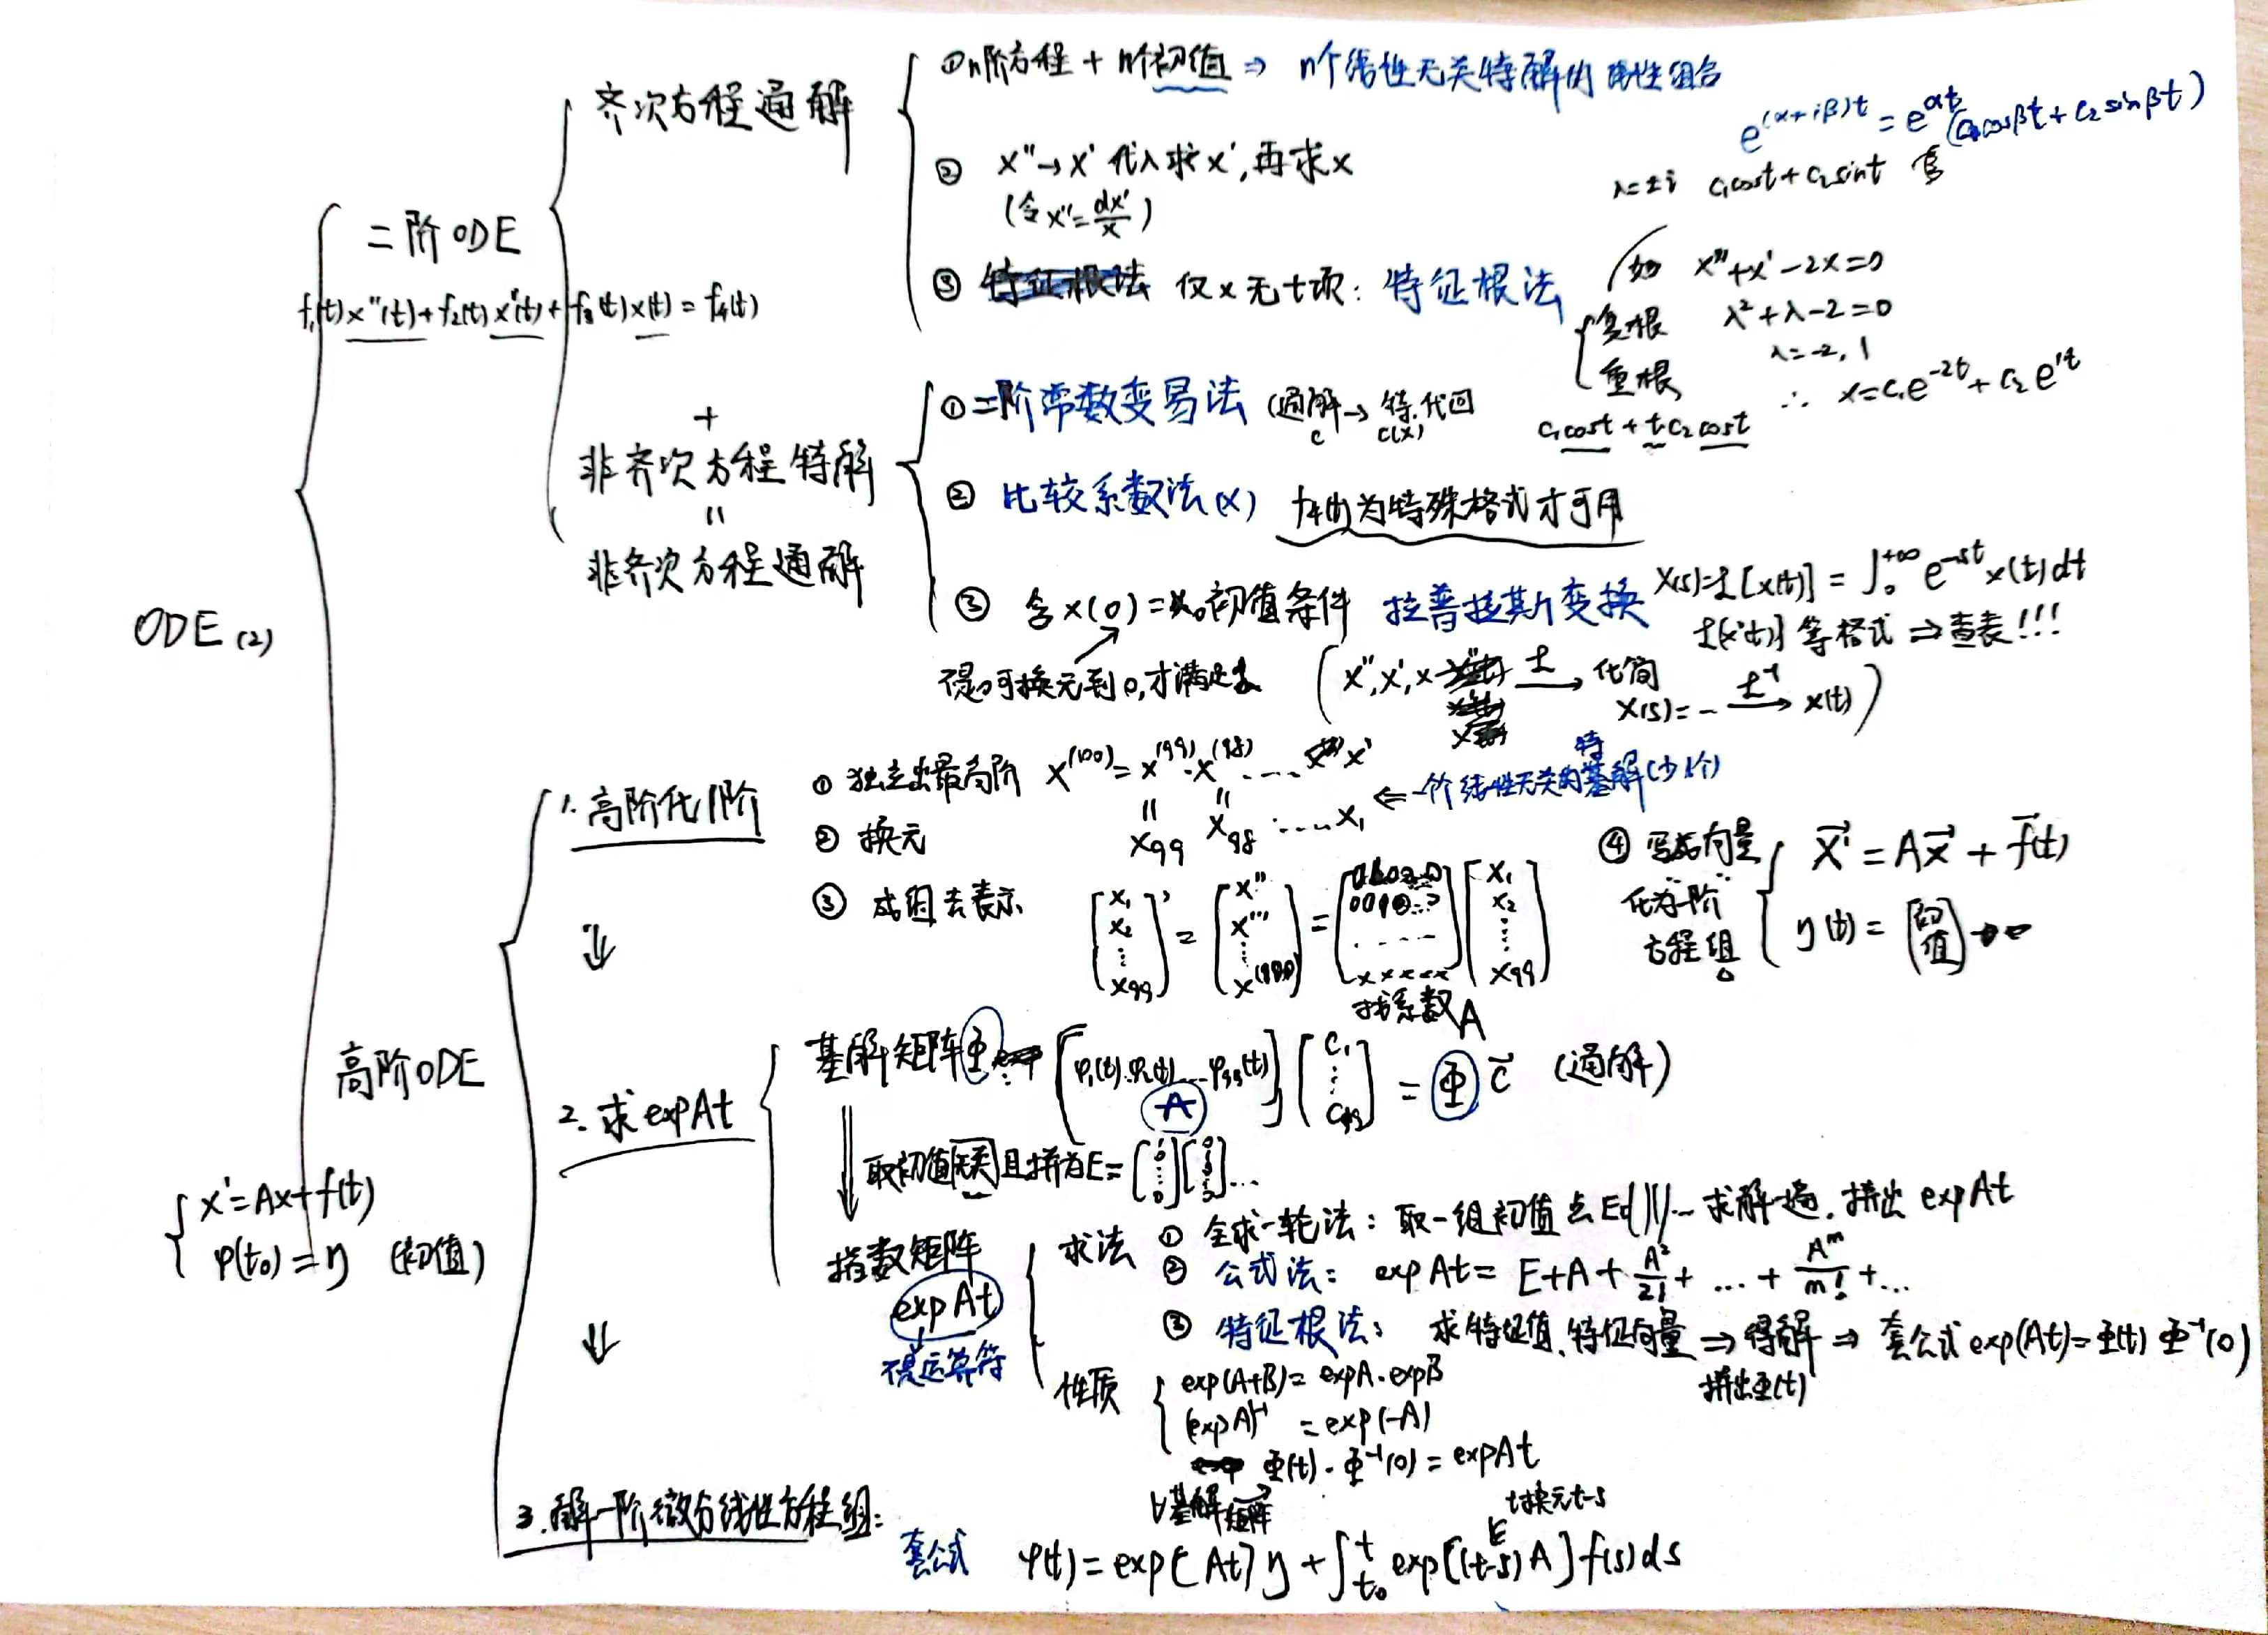 ODE (2)
二阶ODE
f₁(t)x''(t)+f₂(t)x'(t)+f₃(t)x(t)=f₄(t)
齐次方程通解
①n阶方程 + n个初值 ⇒ n个线性无关特解的线性组合
② x''→x' 代入求x',再求x
(令x''=dx'/x)
③ 特征根法 仅x无t项: 特征根法
e^(α+iβ)t = e^αt(c₁cosβt+c₂sinβt)
λ=±i c₁cost+c₂sint
如 x''+x'-2x=0
λ²+λ-2=0
λ=-2, 1
∴ x=c₁e^-2t+c₂e^1t
复根
重根
c₁cost+t·c₂cost
+
非齐次方程特解
=
非齐次方程通解
① 二阶常数变易法 (通解→特.代回
c c(x)
② 比较系数法(x) f₄(t)为特殊格式才可用
③ 含x(0)=x₀初值条件 拉普拉斯变换 X(s)=£[x(t)]=∫₀^+∞ e^-st x(t)dt
£[x'(t)]等格式⇒查表!!!
得可换元到0,才满足
(x'',x',x £→ 化简
X(s)=- £⁻¹→ x(t))
高阶ODE
{x'=Ax+f(t)
φ(t₀)=η (初值)
1.高阶化1阶
① 独立出最高阶 x^(100)=x^(99)·x^(98)····x''x'
② 换元 x₉₉ x₉₈ ····x₁ ⇐一个线性无关的基解(少1个)
特
③ 成组去表示 [x₁ x₂ ⋮ x₉₉]'=[x'' x''' ⋮ x^(100)]=[0100..0 0010..0 ..... xxxxx][x₁ x₂ ⋮ x₉₉]
找系数A
④ 写成向量 x⃗'=Ax⃗+f⃗(t)
化为一阶
方程组 η(t)=[初值]
⇓
2.求expAt
基解矩阵Φ [φ₁(t).φ₂(t)....φ₉₉(t)][c₁ ⋮ c₉₉]=Φc⃗ (通解)
A
取初值无关且拼为E=[1 0 ⋮ 0][0 1 ⋮ 0]...
指数矩阵
expAt
不是运算符
求法 ① 全求一轮法: 取一组初值点E 求解一遍.拼出expAt
② 公式法: expAt=E+A+A²/2!+...+A^m/m!+...
③ 特征根法: 求特征值.特征向量⇒得解⇒套公式exp(At)=Φ(t)Φ⁻¹(0)
拼出Φ(t)
性质 {exp(A+B)=expA·expB
(expA)⁻¹=exp(-A)
Φ(t)·Φ⁻¹(0)=expAt
∀基解矩阵
⇓
3.解一阶微分线性方程组:
t换元t-s
套公式 φ(t)=exp[At]η+∫t₀^t exp[(t-s)A]f(s)ds